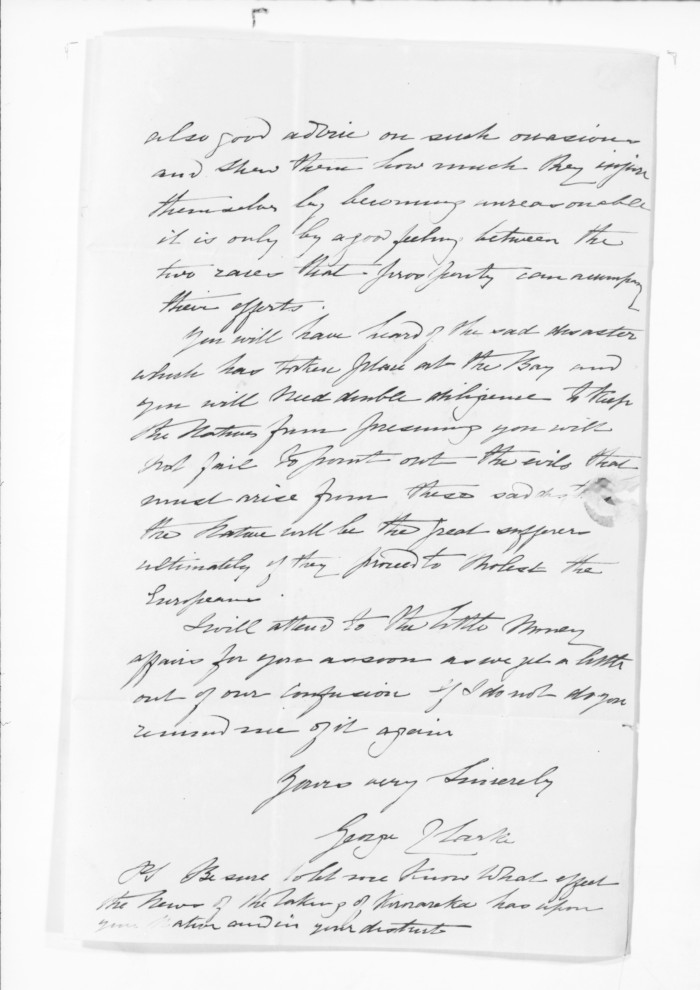 also good advice on such occasions
and shew them how much they injure
themselves by becoming unreasonable
it is only by a good feeling between the
two races that prosperity can accompany
their efforts.
You will have heard of the sad disaster
which has taken place at the Bay and
you will need double diligence to keep
the Natives from presuming you will
not fail to point out the evils that
must arise from these sad
the Native will be the great sufferers
ultimately if they proceed to molest the
Europeans.
I will attend to the little Money
affairs for you as soon as we get a little
out of our confusion if I do not do you
remind me of it again
Yours very Sincerely
George Clarke
PS Be sure to let me know what effect
the News of the taking of Kororareka has upon
your Native and in your districts